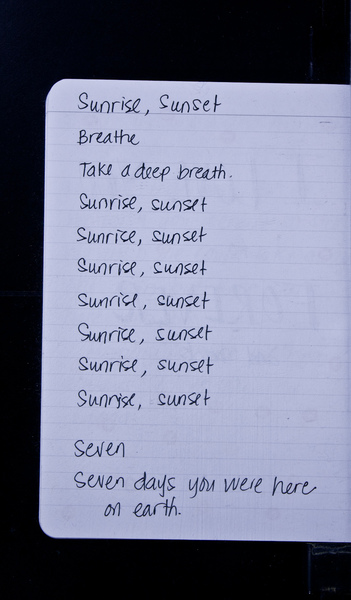 Sunrise, Sunset
Breathe
Take a deep breath.
Sunrise, sunset
Sunrise, sunset
Sunrise, sunset
Sunrise, sunset
Sunrise, sunset
Sunrise, sunset
Sunrise, sunset
Seven
Seven days you were here
on earth.